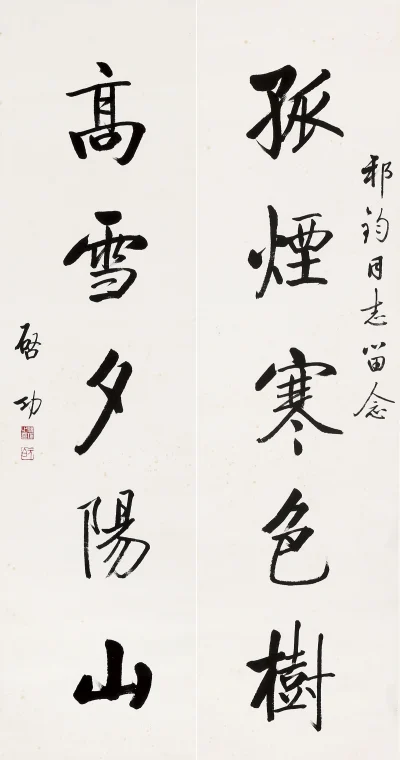 鈞同志留念
孤煙寒色樹
髙雪夕陽山
啓功